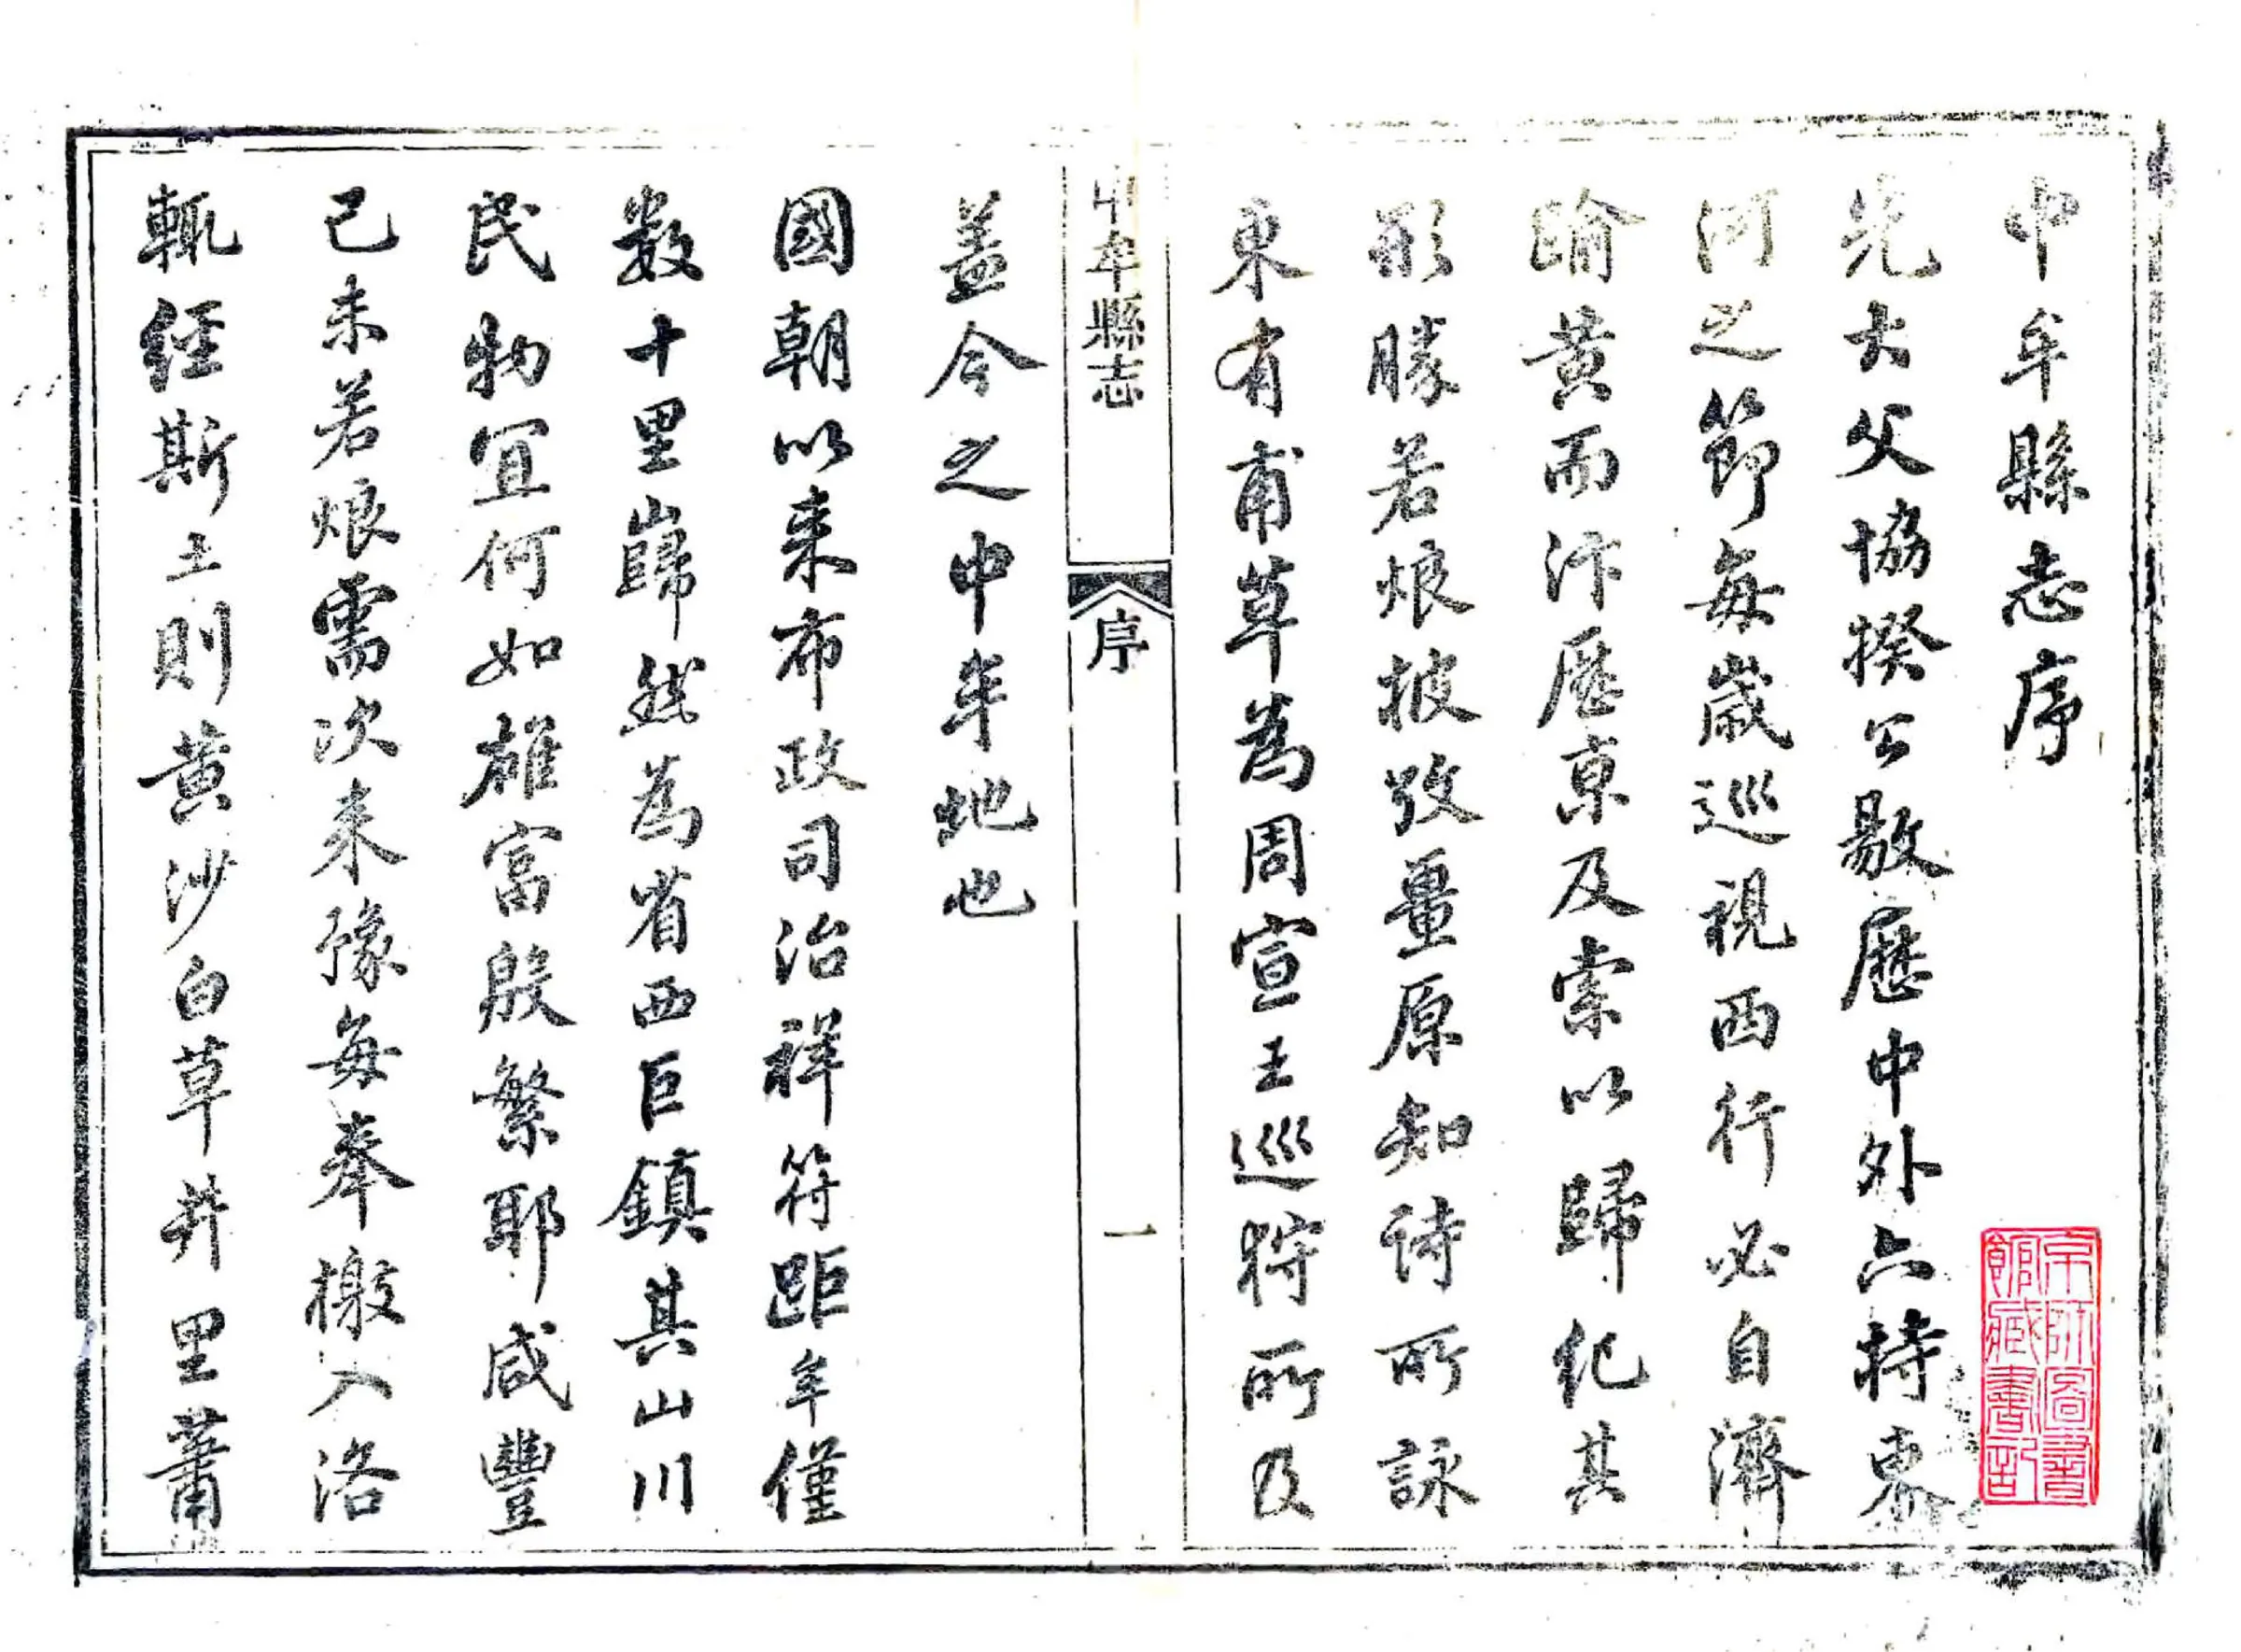 中牟縣志序
先大父協揆公敭歷中外六持東
河之節每嵗巡視西行必自濟
踰黄而汴歷京及索以歸紀其
形勝若烺披攷畺原知诗所詠
東有甫草為周宣王巡狩所及
中牟縣志
序
一
盖今之中牟地也
國朝以来布政司治祥符距牟僅
数十里巋然為省西巨鎮其山川
民物宜何如雄富殷繁耶咸豐
己未若烺需次来豫每奉檄入洛
輒經斯土則黄沙白草井里蕭
京師圖書
館藏書記